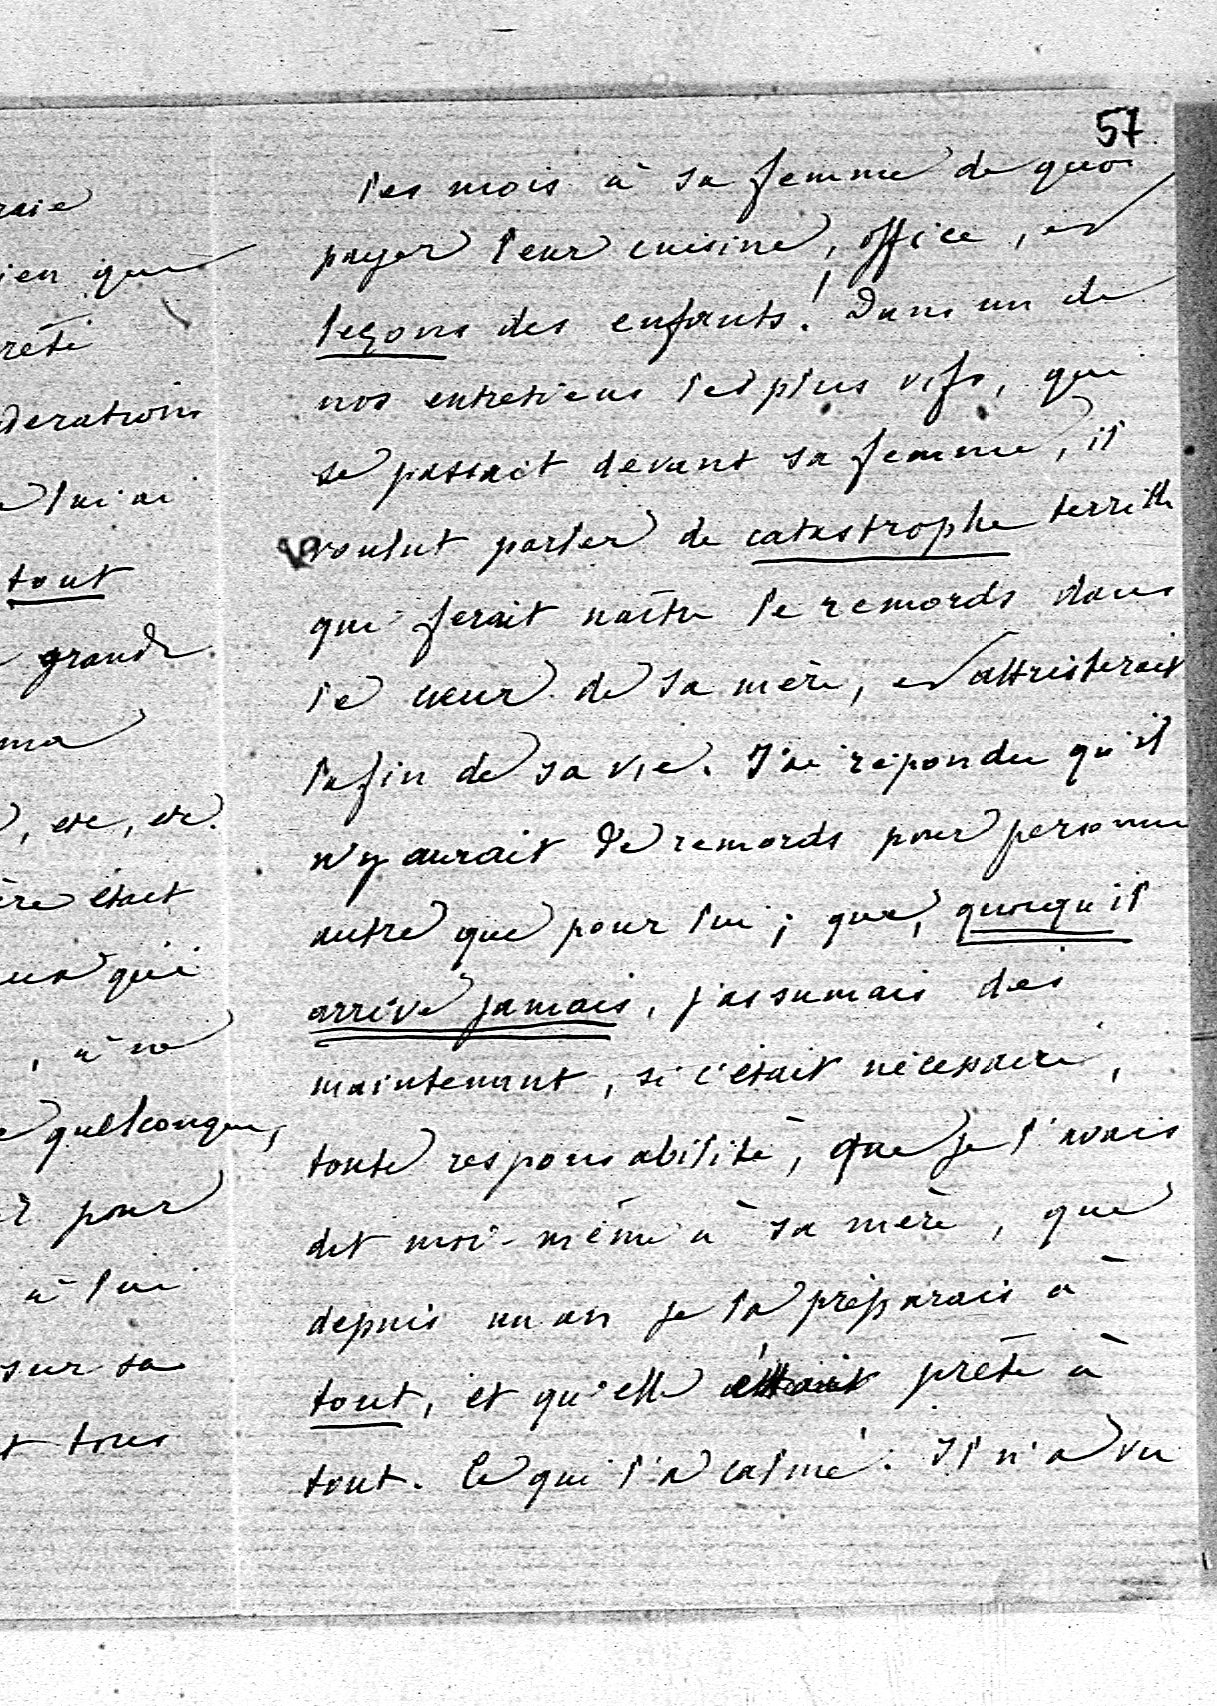 57
les mois à sa femme de quoi
payer leur cuisine, office, et
leçons des enfants! Dans un de
nos entretiens les plus vifs, qui
se passait devant sa femme, il
voulut parler de catastrophe terrible
qui ferait naître le remords dans
le cœur de sa mère, et attristerait
la fin de sa vie. J'ai répondu qu'il
n'y aurait de remords pour personne
autre que pour lui; que, quoiqu'il
arrive jamais, j'assumais dès
maintenant, si c'était nécessaire,
toute responsabilité, que je l'avais
dit moi-même à sa mère, que
depuis un an je la préparais à
tout, et qu'elle était prête à
tout. Ce qui l'a calmé. Il n'a vu
ien que
dérations
lui ai
tout
grande
ma
, etc, etc.
ère était
qui
, à
quelconque,
pour
à lui
sur sa
tous